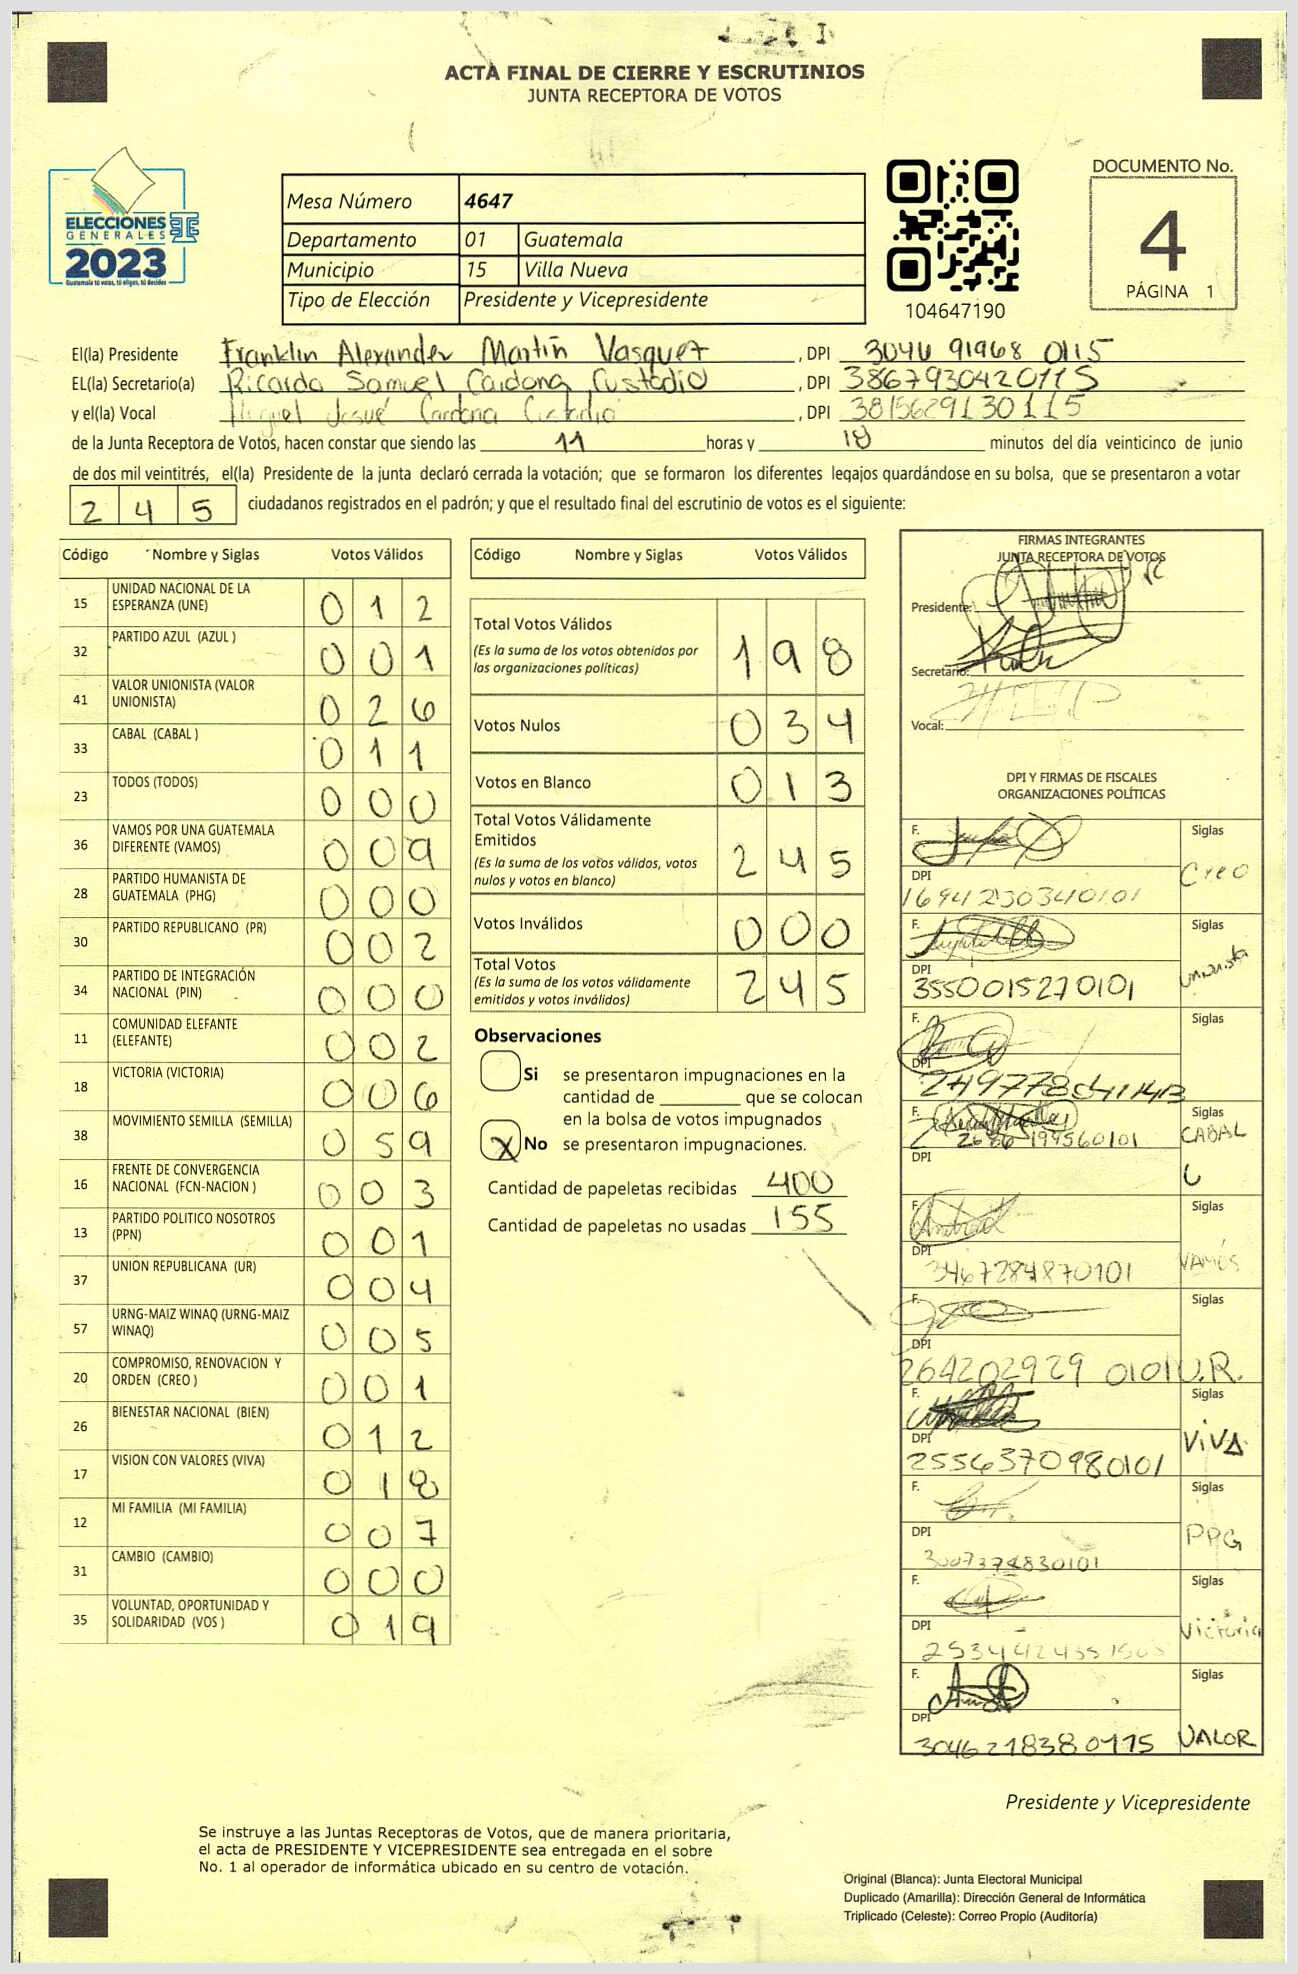 ACTA FINAL DE CIERRE Y ESCRUTINIOS
JUNTA RECEPTORA DE VOTOS
ELECCIONES
GENERALES
2023
Guatemala tú votas, tú eliges, tú decides
Mesa Número 4647
Departamento 01 Guatemala
Municipio 15 Villa Nueva
Tipo de Elección Presidente y Vicepresidente
104647190
DOCUMENTO No.
4
PÁGINA 1
El(la) Presidente Franklin Alexander Martín Vasquez, DPI 3046 91968 0115
EL(la) Secretario(a) Ricardo Samuel Cardona Custodio, DPI 3867930420115
y el(la) Vocal Miguel Josué Cardona Custodio, DPI 3815629130115
de la Junta Receptora de Votos, hacen constar que siendo las 11 horas y 18 minutos del día veinticinco de junio
de dos mil veintitrés, el(la) Presidente de la junta declaró cerrada la votación; que se formaron los diferentes legajos quardándose en su bolsa, que se presentaron a votar
245 ciudadanos registrados en el padrón; y que el resultado final del escrutinio de votos es el siguiente:
Código Nombre y Siglas Votos Válidos
15 UNIDAD NACIONAL DE LA ESPERANZA (UNE) 012
32 PARTIDO AZUL (AZUL ) 001
41 VALOR UNIONISTA (VALOR UNIONISTA) 026
33 CABAL (CABAL ) 011
23 TODOS (TODOS) 000
36 VAMOS POR UNA GUATEMALA DIFERENTE (VAMOS) 009
28 PARTIDO HUMANISTA DE GUATEMALA (PHG) 000
30 PARTIDO REPUBLICANO (PR) 002
34 PARTIDO DE INTEGRACIÓN NACIONAL (PIN) 000
11 COMUNIDAD ELEFANTE (ELEFANTE) 002
18 VICTORIA (VICTORIA) 006
38 MOVIMIENTO SEMILLA (SEMILLA) 059
16 FRENTE DE CONVERGENCIA NACIONAL (FCN-NACION ) 003
13 PARTIDO POLITICO NOSOTROS (PPN) 001
37 UNION REPUBLICANA (UR) 004
57 URNG-MAIZ WINAQ (URNG-MAIZ WINAQ) 005
20 COMPROMISO, RENOVACION Y ORDEN (CREO ) 001
26 BIENESTAR NACIONAL (BIEN) 012
17 VISION CON VALORES (VIVA) 018
12 MI FAMILIA (MI FAMILIA) 007
31 CAMBIO (CAMBIO) 000
35 VOLUNTAD, OPORTUNIDAD Y SOLIDARIDAD (VOS ) 019
Código Nombre y Siglas Votos Válidos
Total Votos Válidos 198
(Es la suma de los votos obtenidos por
las organizaciones políticas)
Votos Nulos 034
Votos en Blanco 013
Total Votos Válidamente
Emitidos 245
(Es la suma de los votos válidos, votos
nulos y votos en blanco)
Votos Inválidos 000
Total Votos 245
(Es la suma de los votos válidamente
emitidos y votos inválidos)
Observaciones
Si se presentaron impugnaciones en la
cantidad de ________ que se colocan
en la bolsa de votos impugnados
X No se presentaron impugnaciones.
Cantidad de papeletas recibidas 400
Cantidad de papeletas no usadas 155
FIRMAS INTEGRANTES
JUNTA RECEPTORA DE VOTOS
Presidente:
Secretario:
Vocal:
DPI Y FIRMAS DE FISCALES
ORGANIZACIONES POLÍTICAS
F. Siglas
Creo
DPI
1694230340101
F. Siglas
unionista
DPI
3550015270101
F. Siglas
DPI
F. Siglas
CABAL
199560101
DPI
F. Siglas
VAMOS
DPI
3467284870101
F. Siglas
DPI
264202929 0101 U.R.
F. Siglas
VIVA
DPI
2556370980101
F. Siglas
PPG
DPI
3007374830101
F. Siglas
Victoria
DPI
F. Siglas
DPI
3046218380115 VALOR
Presidente y Vicepresidente
Se instruye a las Juntas Receptoras de Votos, que de manera prioritaria,
el acta de PRESIDENTE Y VICEPRESIDENTE sea entregada en el sobre
No. 1 al operador de informática ubicado en su centro de votación.
Original (Blanca): Junta Electoral Municipal
Duplicado (Amarilla): Dirección General de Informática
Triplicado (Celeste): Correo Propio (Auditoría)